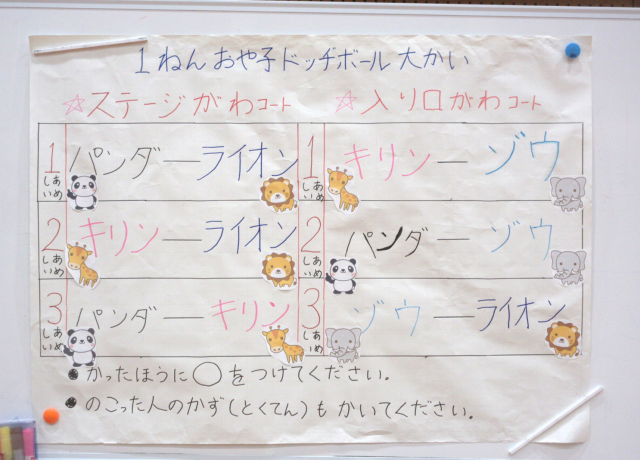 1ねんおや子ドッヂボール大かい
☆ステージがわコート ☆入り口がわコート
1しあいめ パンダーライオン 1しあいめ キリンーゾウ
2しあいめ キリンーライオン 2しあいめ パンダーゾウ
3しあいめ パンダーキリン 3しあいめ ゾウーライオン
●かったほうに○をつけてください。
●のこった人のかず(とくてん)もかいてください。